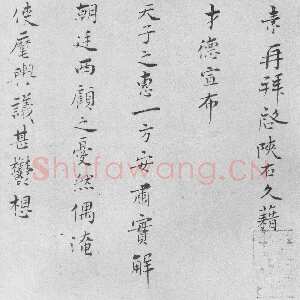 素再拜啟陝右久藉
才德宣布
天子之惠一方安肅實解
朝廷西顧之憂然偶淹
使麾輿議甚鬱想
Shufawang.CN